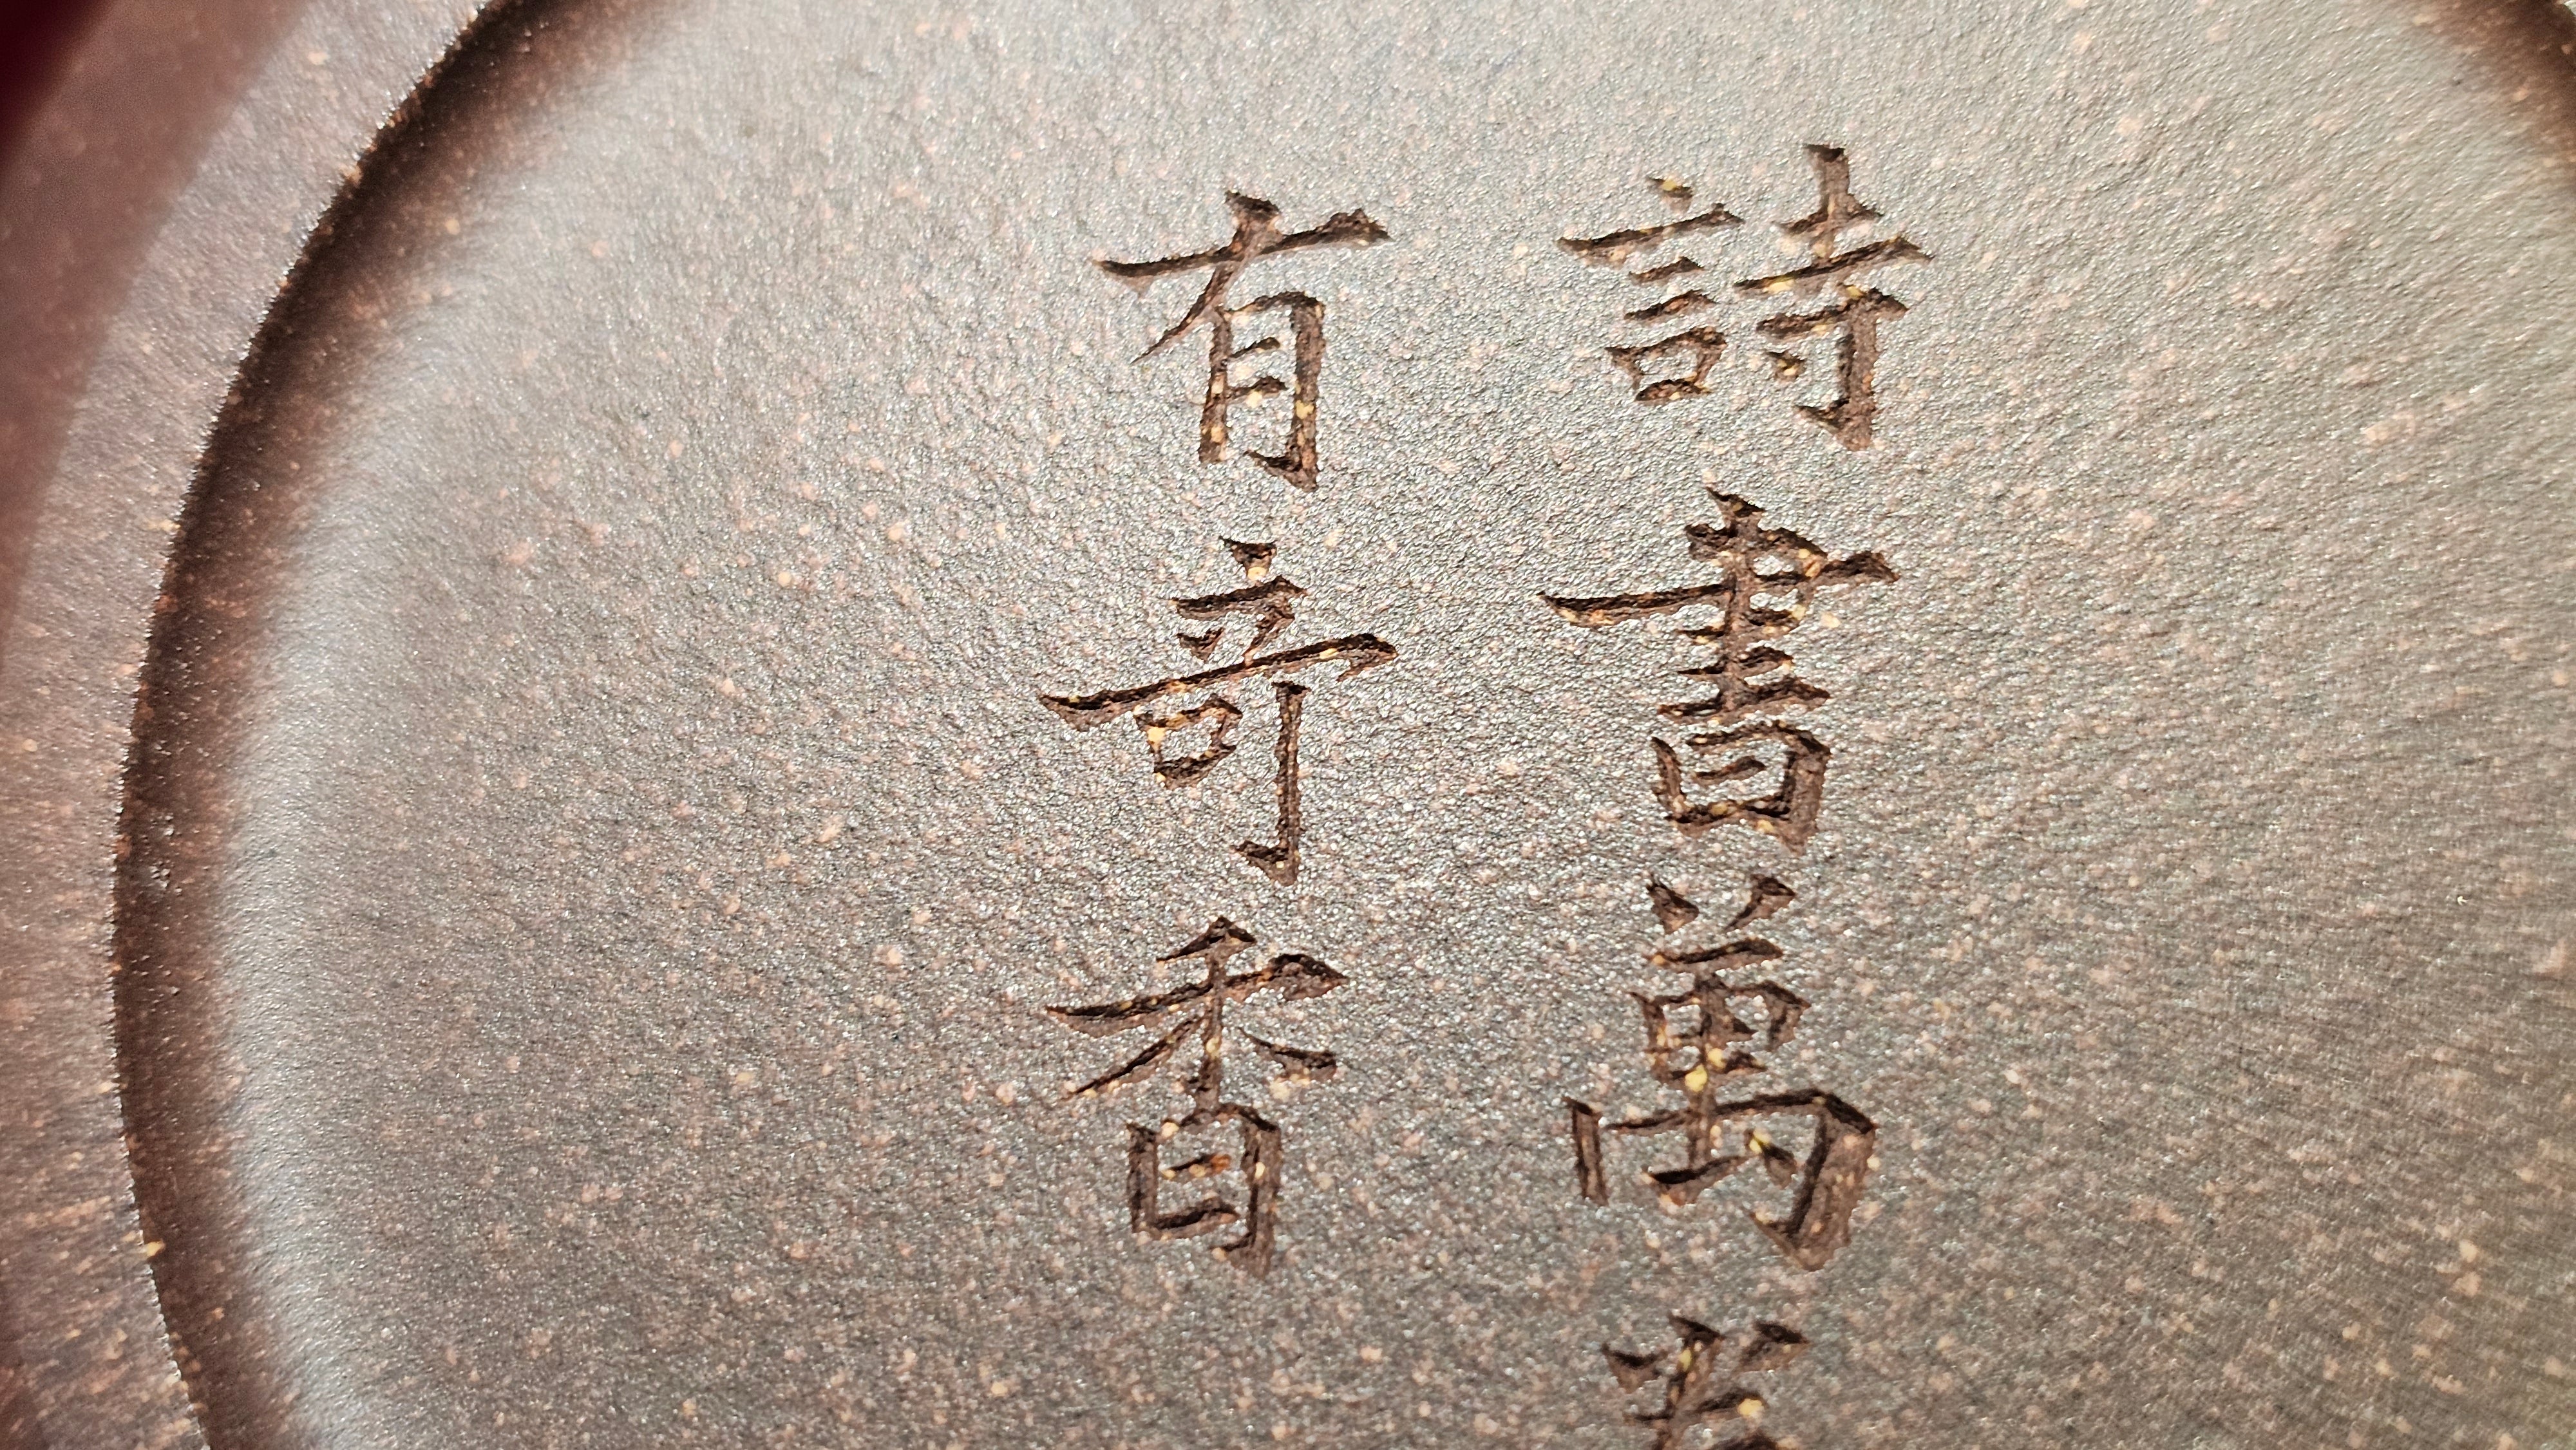 詩書萬
有奇香